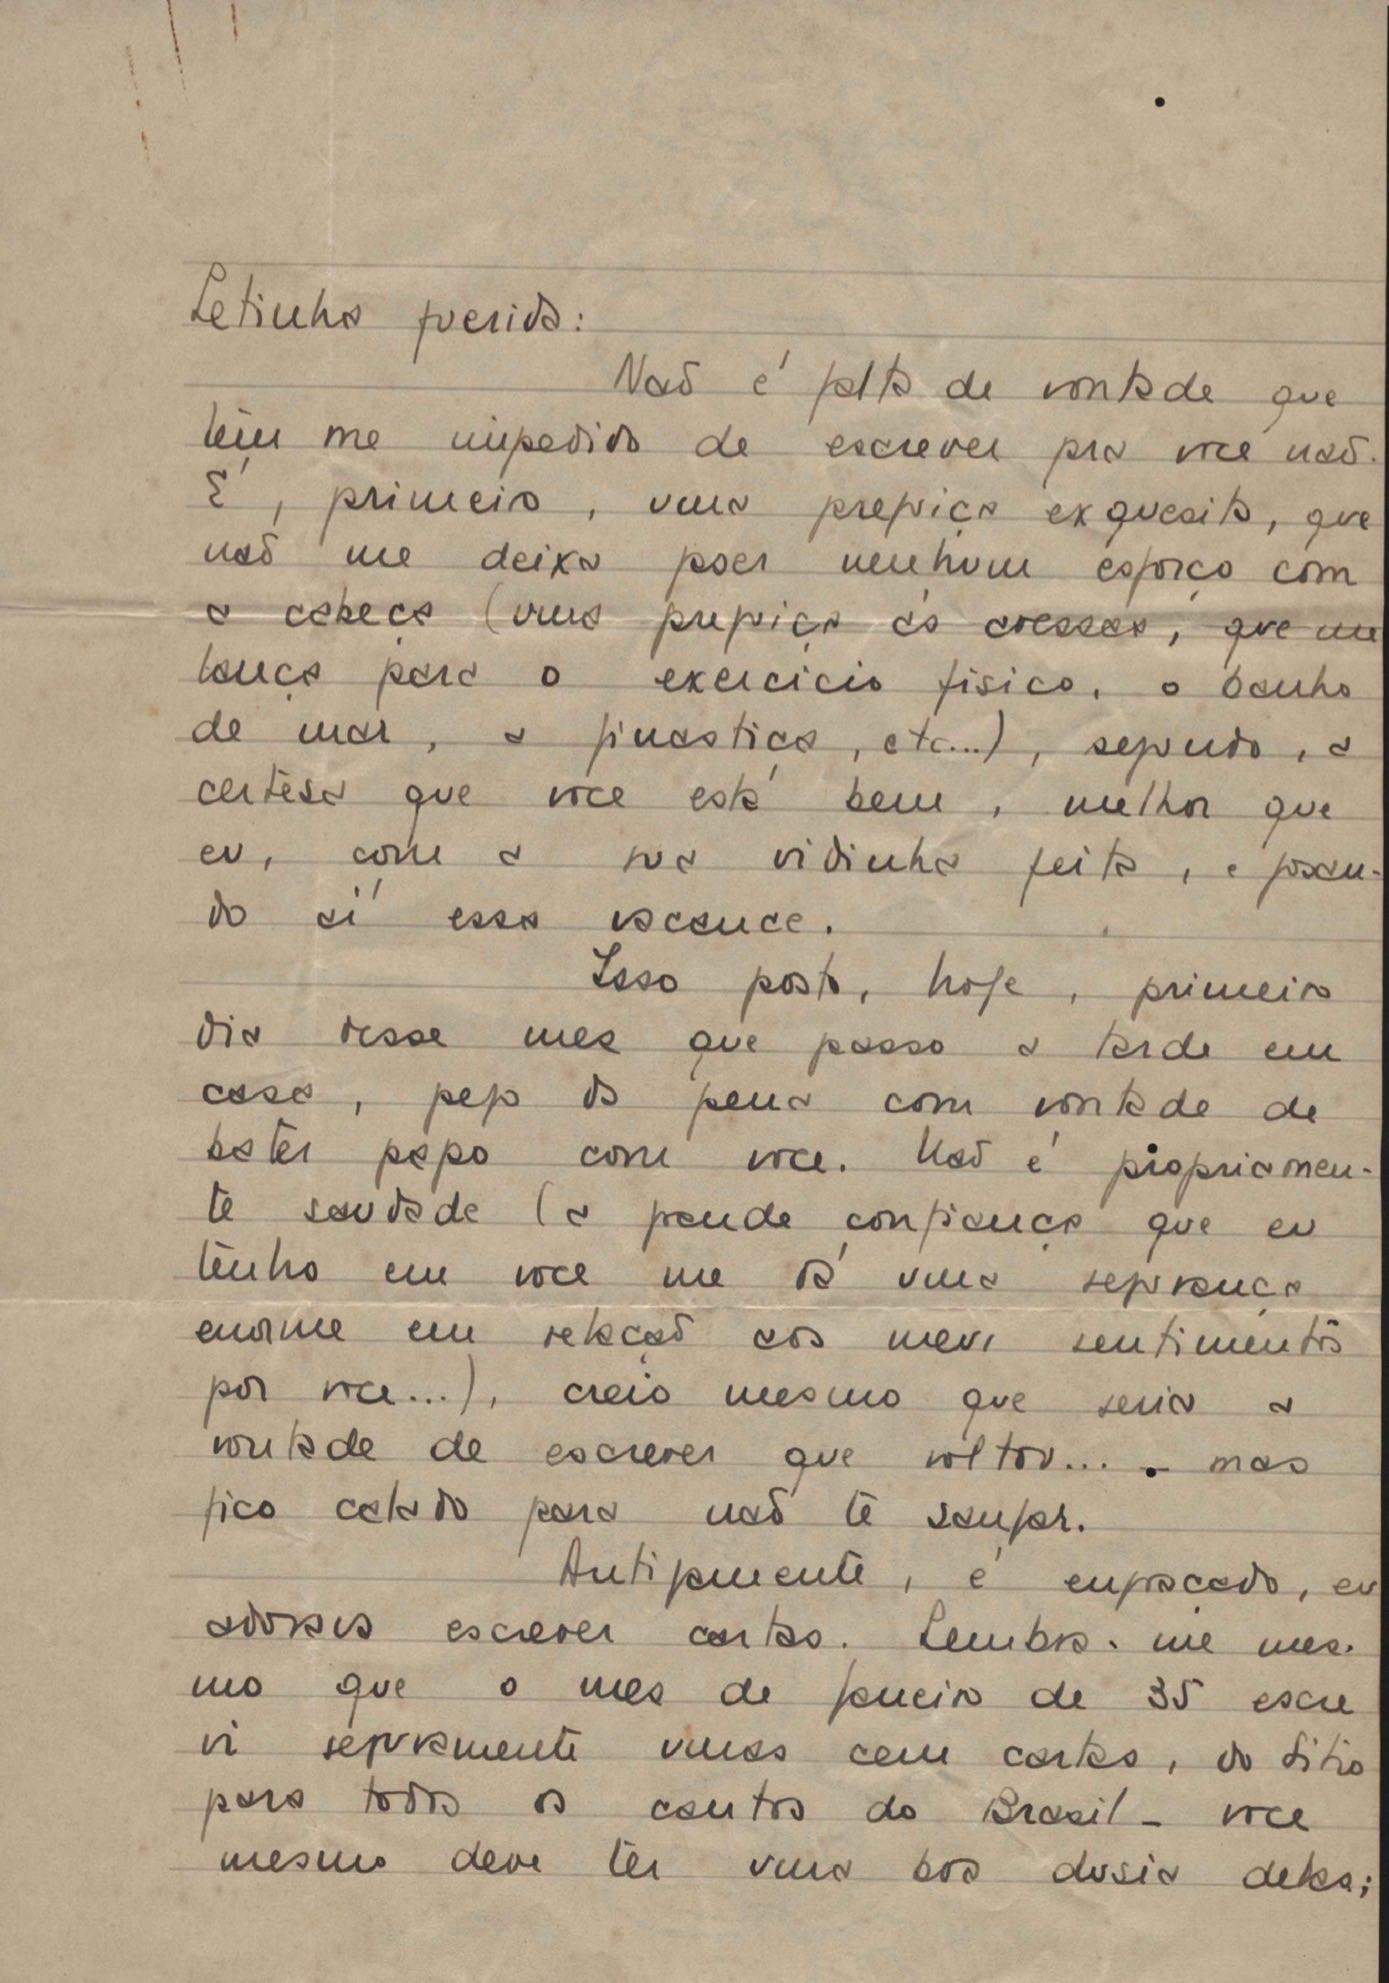 Letinha querida:
Não é falta de vontade que
têm me impedido de escrever pra voce não.
É, primeiro, uma preguiça exquesita, que
não me deixa fazer nenhum esforço com
a cabeça (uma preguiça ás avessas, que me
lança para o exercício fisico, o banho
de mar, a ginastica, etc...), segundo, a
certêsa que voce está bem, melhor que
eu, com a sua vidinha feita, e gosan-
do aí essa vacance.
Isso posto, hoje, primeiro
dia desse mes que passo a tarde em
casa, pego da pena com vontade de
bater papo com voce. Não é propriamen-
te saudade (a grande confiança que eu
tenho em voce me dá uma segurança
enorme em relação aos meus sentimentos
por voce...), creio mesmo que seria a
vontade de escrever que voltou... - mas
fico calado para não te zangar.
Antigamente, é engraçado, eu
adorava escrever cartas. Lembra-me mes-
mo que o mes de janeiro de 35 escre
vi seguramente umas cem cartas, do Sitio
para todos os cantos do Brasil - voce
mesmo deve ter uma boa dusia delas;